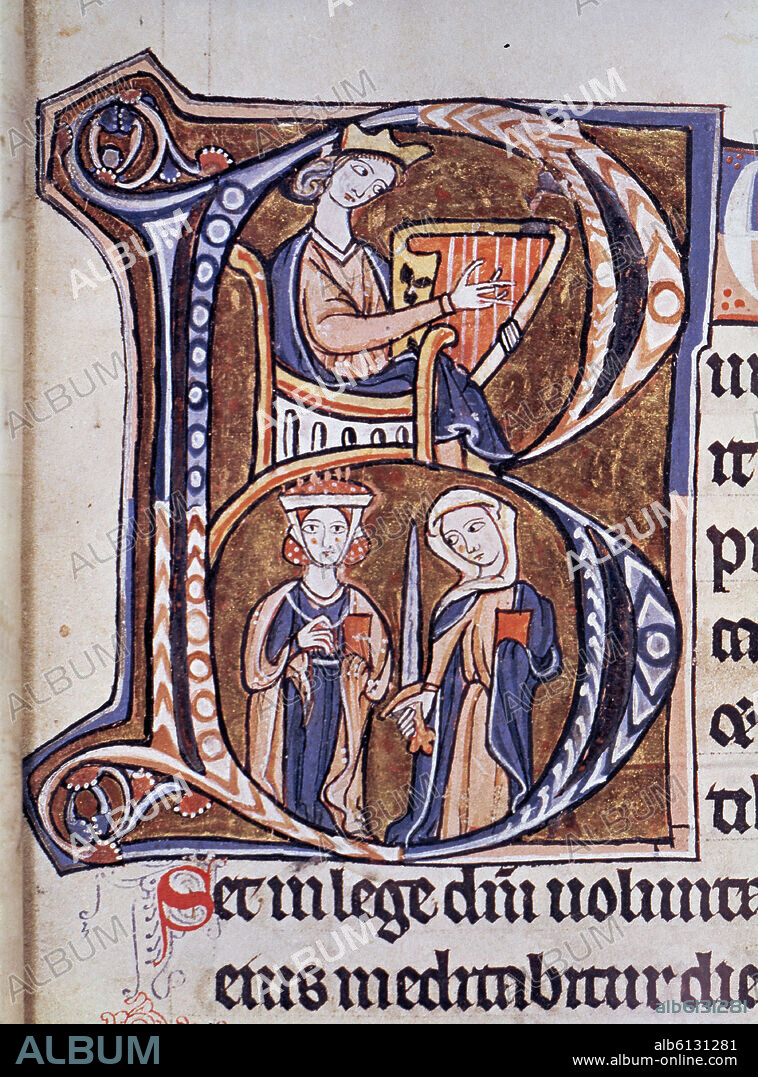 B
ur
it
pr
ca
&
tib
Set in lege dñi uolunta
eius meditabitur die
alb6131281
ALBUM
alb6131281
www.album-online.com